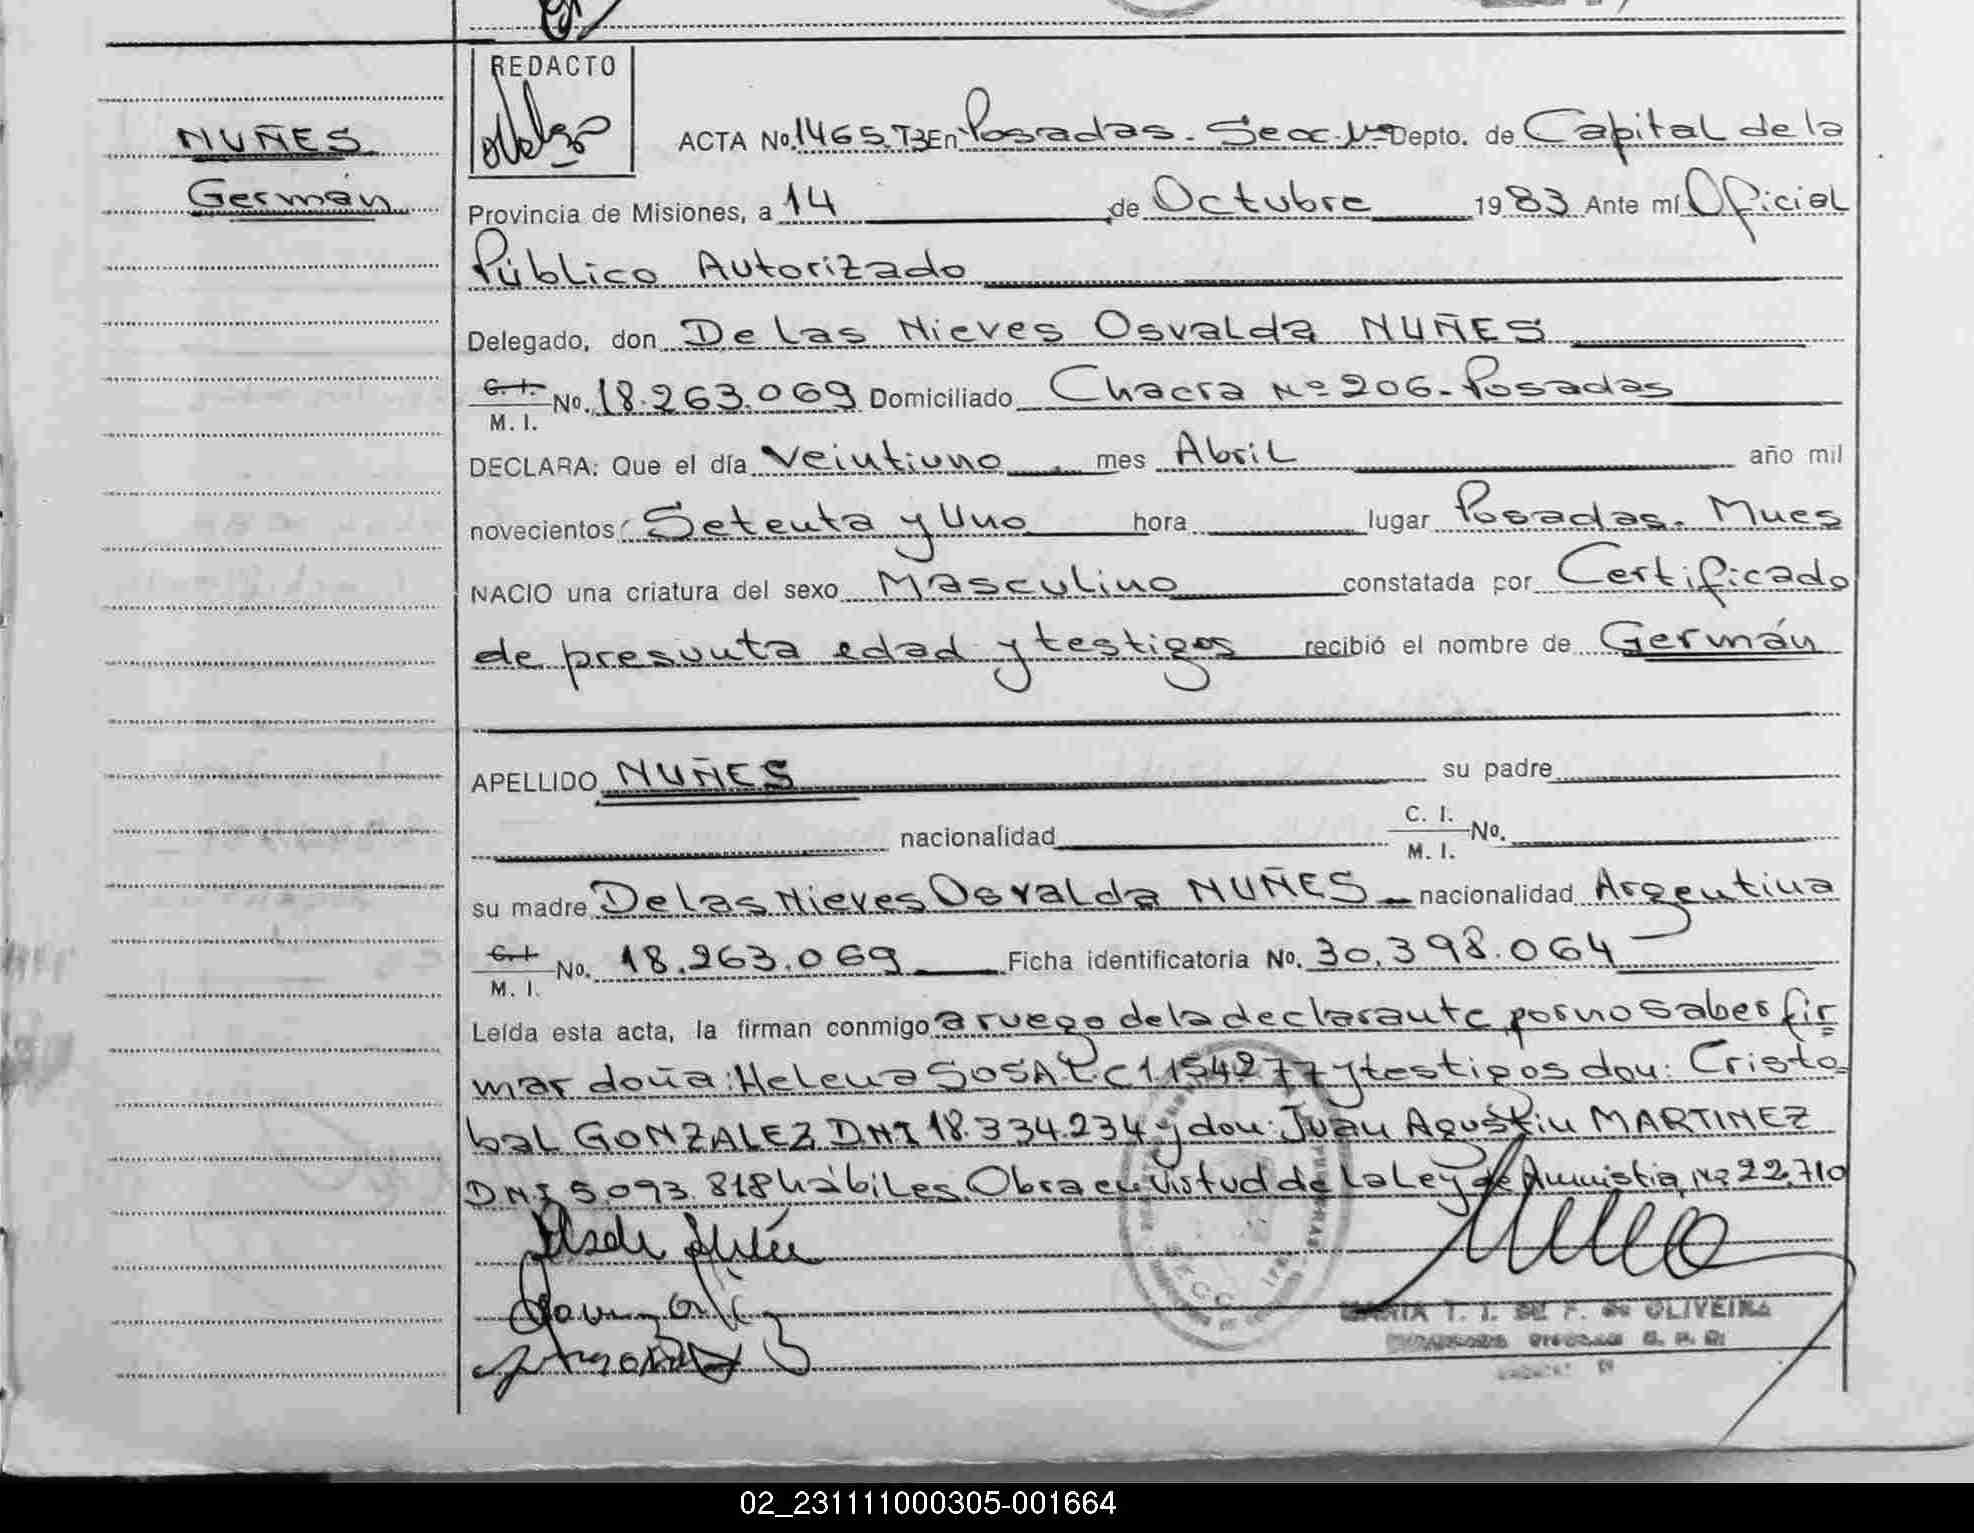 REDACTO
NUÑES
Germán
ACTA No. 1465. T3 En Posadas. Secc. 1ª Depto. de Capital de la
Provincia de Misiones, a 14 de Octubre 1983 Ante mí Oficial
Público Autorizado
Delegado, don De las Nieves Osvalda NUÑES
C. I. M. I. No. 18.263.069 Domiciliado Chacra Nº 206. Posadas
DECLARA: Que el día Veintiuno mes Abril año mil
novecientos Setenta y Uno hora lugar Posadas. Mnes
NACIO una criatura del sexo Masculino constatada por Certificado
de presunta edad y testigos recibió el nombre de Germán
APELLIDO NUÑES su padre
nacionalidad C. I. M. I. No.
su madre De las Nieves Osvalda NUÑES nacionalidad Argentina
C. I. M. I. No. 18.263.069 Ficha identificatoria No. 30.398.064
Leída esta acta, la firman conmigo a ruego de la declarante por no saber fir
mar doña: Helena SOSA LC 1154277 y testigos don: Cristo
bal GONZALEZ DNI 18.334.234 y don: Juan Agustin MARTINEZ
DNI 5.093.818 hábiles. Obra en virtud de la Ley de Amnistia Nº 22.710
MARIA T. I. DE F. DE OLIVEIRA
02_231111000305-001664